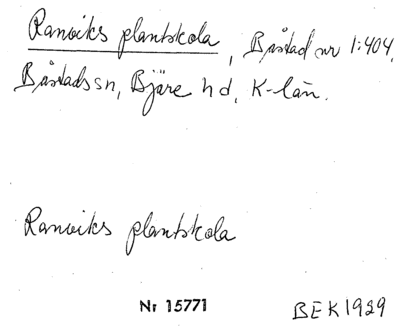 Ranviks plantskola, Båstad nr 1:404,
Båstads sn, Bjäre hd, K-län.
Ranviks plantskola
Nr 15771
BEK1929